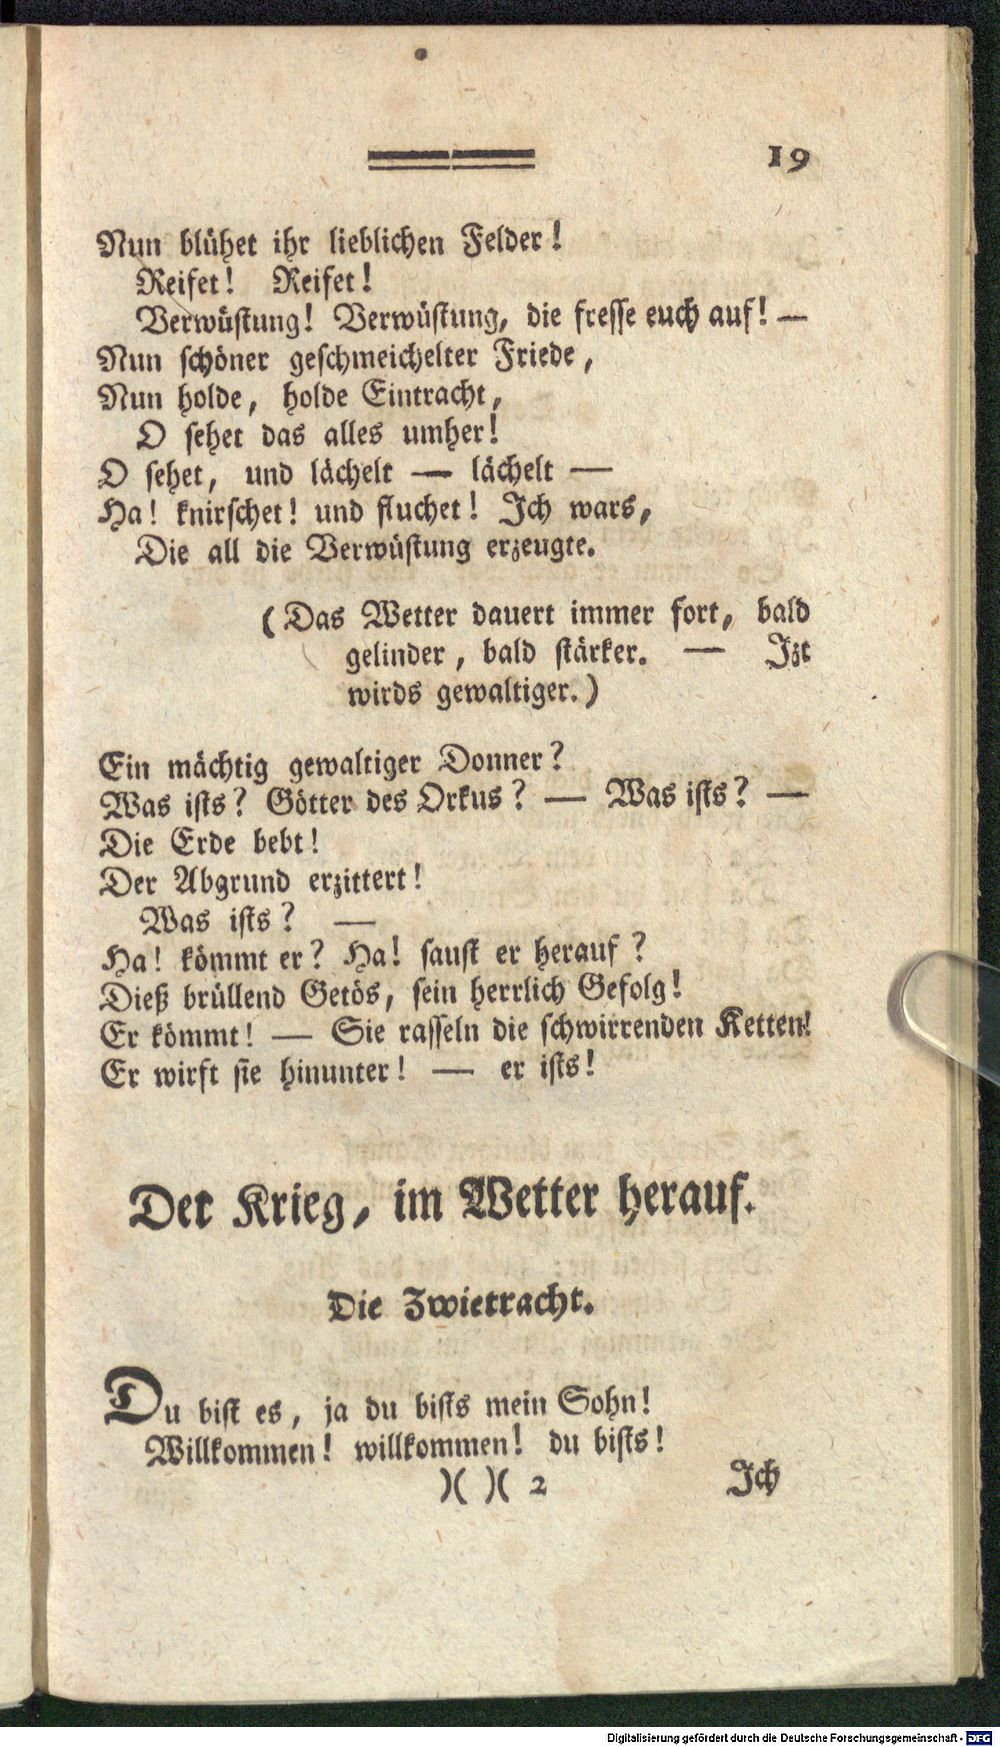 19
Nun blühet ihr lieblichen Felder!
Reifet! Reifet!
Verwüstung! Verwüstung, die fresse euch auf! —
Nun schöner geschmeichelter Friede,
Nun holde, holde Eintracht,
O sehet das alles umher!
O sehet, und lächelt — lächelt —
Ha! knirschet! und fluchet! Ich wars,
Die all die Verwüstung erzeugte.
(Das Wetter dauert immer fort, bald
gelinder, bald stärker. — Izt
wirds gewaltiger.)
Ein mächtig gewaltiger Donner?
Was ists? Götter des Orkus? — Was ists? —
Die Erde bebt!
Der Abgrund erzittert!
Was ists? —
Ha! kömmt er? Ha! saust er herauf?
Dieß brüllend Getös, sein herrlich Gefolg!
Er kömmt! — Sie rasseln die schwirrenden Ketten!
Er wirft sie hinunter! — er ists!
Der Krieg, im Wetter herauf.
Die Zwietracht.
Du bist es, ja du bists mein Sohn!
Willkommen! willkommen! du bists!
)( )( 2 Ich
Digitalisierung gefördert durch die Deutsche Forschungsgemeinschaft - DFG